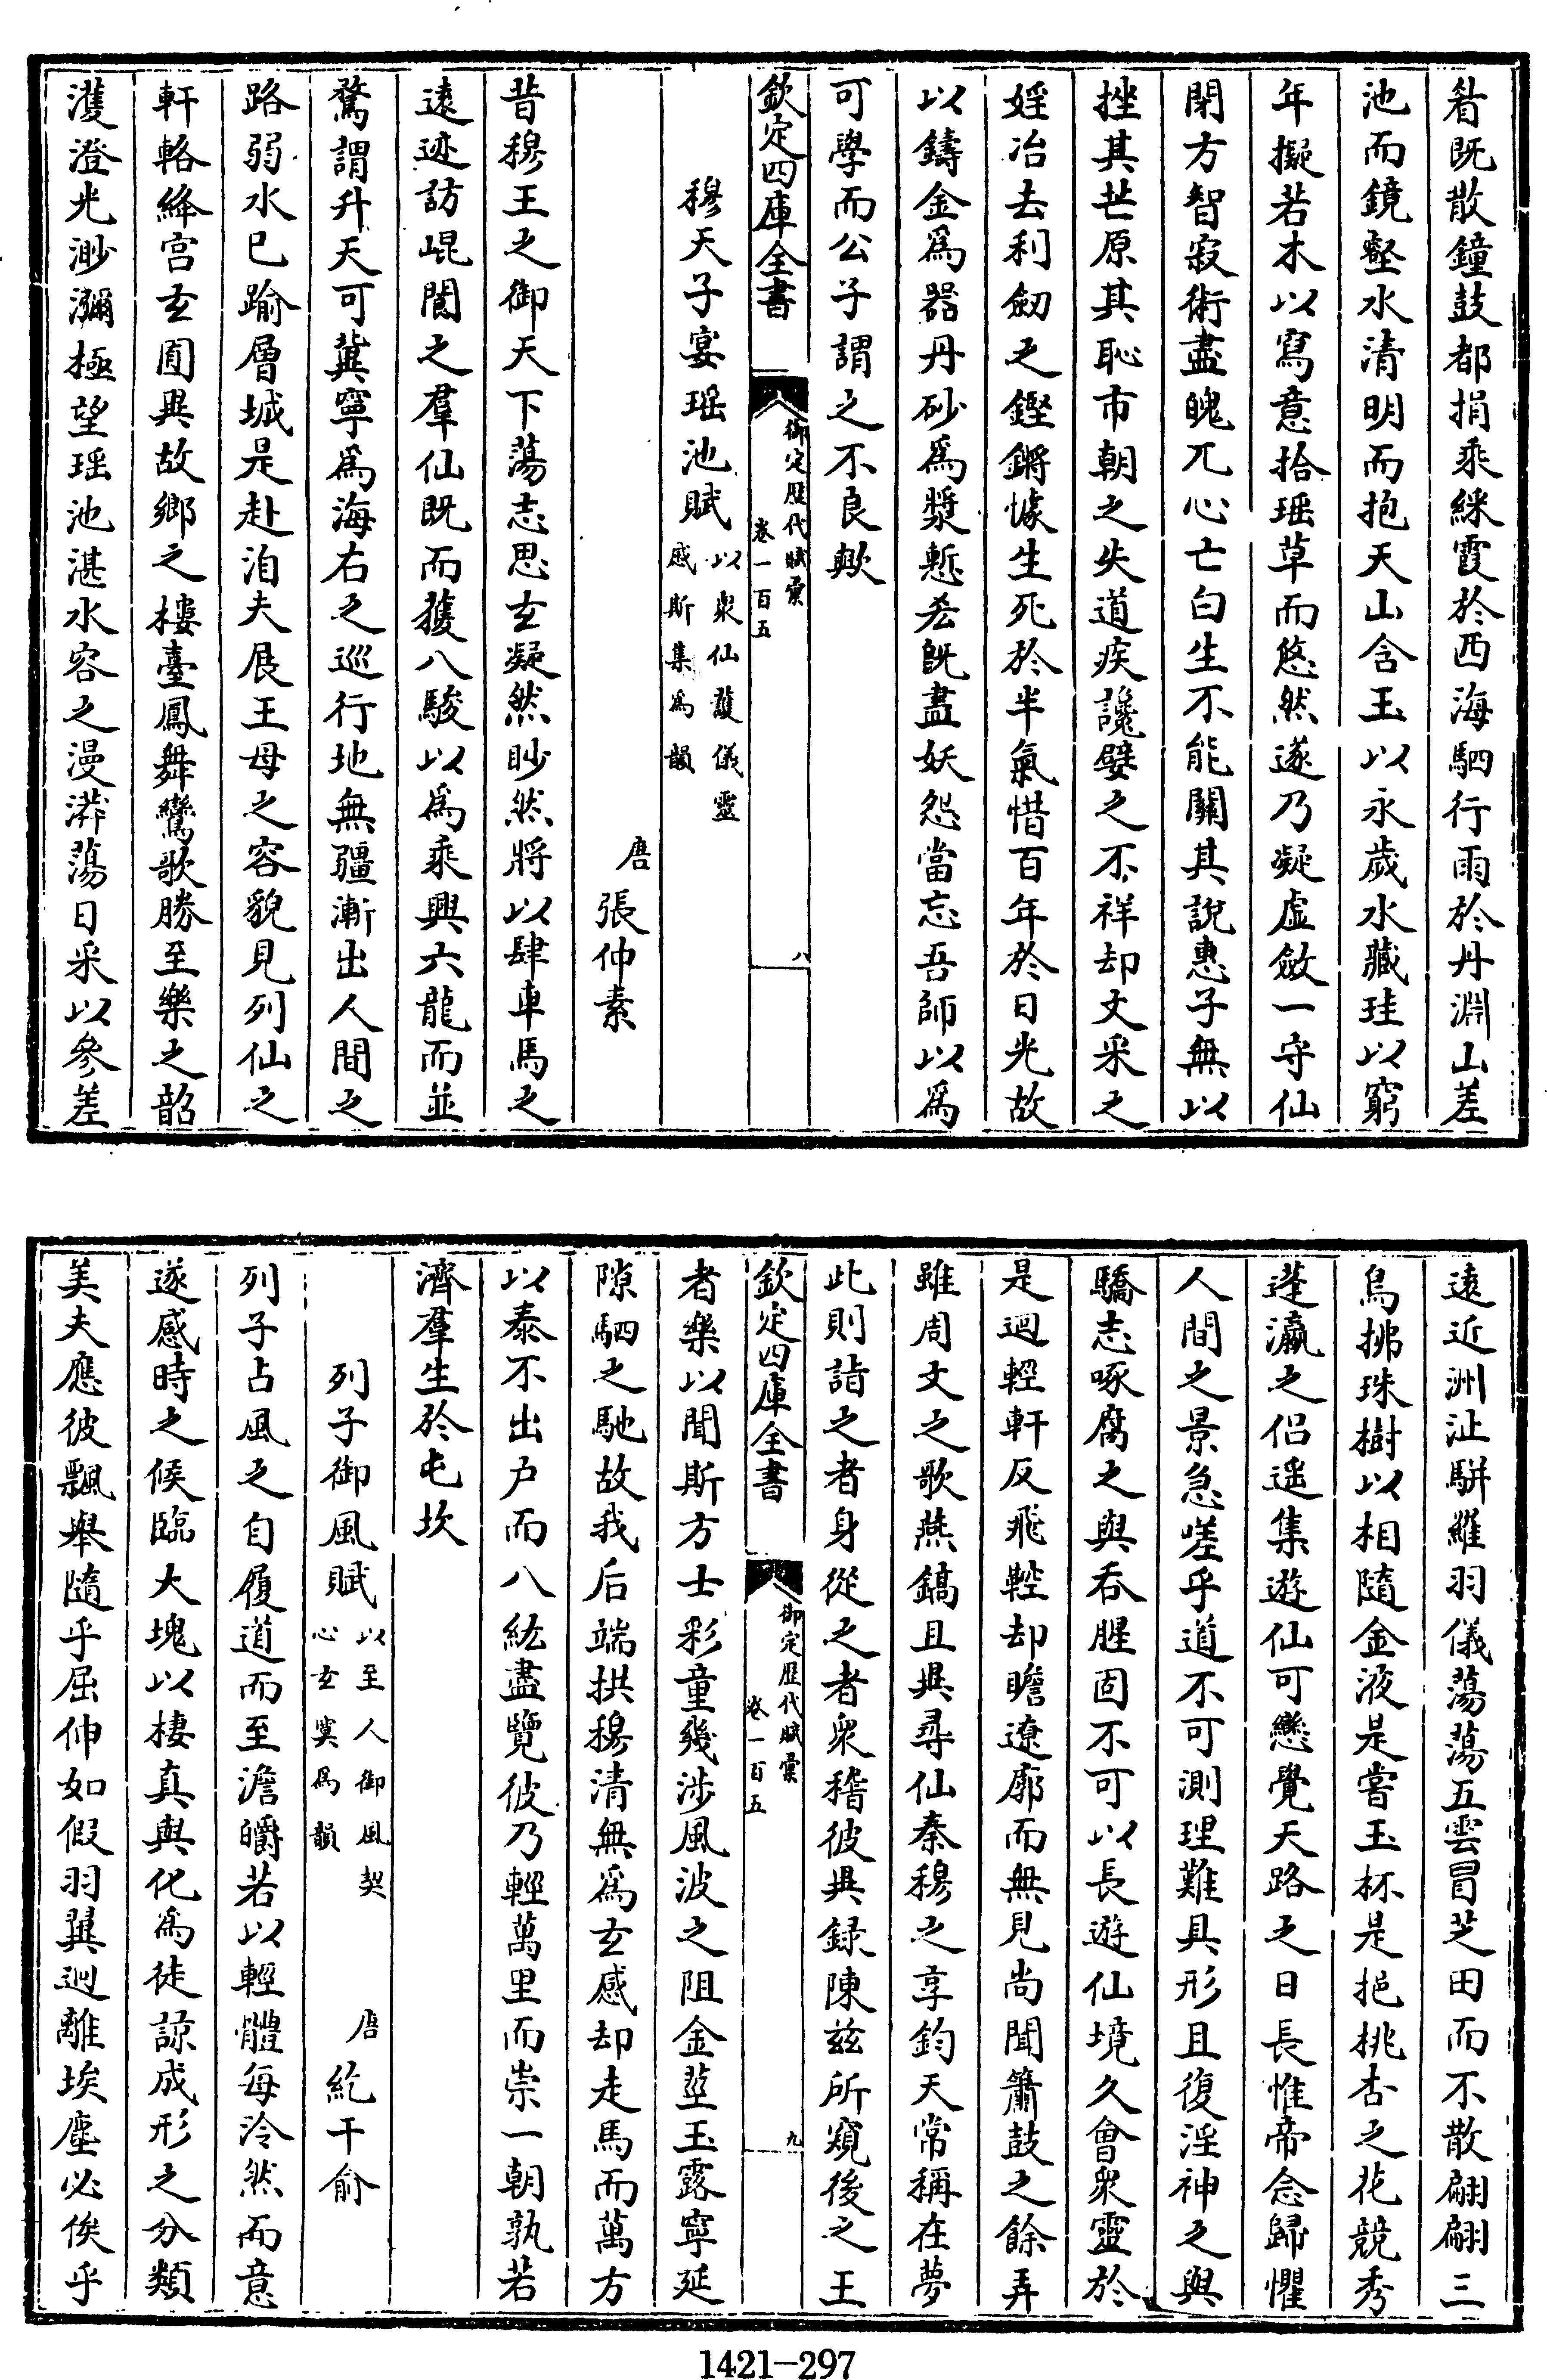 着既散鐘鼓都捐乘綵霞於西海駟行雨於丹淵山差
池而鏡壑水清明而抱天山含玉以永歲水藏珪以窮
年擬若木以寫意拾瑶草而悠然遂乃凝虚斂一守仙
閉方智寂術盡魄兀心亡白生不能關其説惠子無以
挫其芒原其恥市朝之失道疾讒嬖之不祥却文采之
婬冶去利劒之鏗鏘懅生死於半氣惜百年於日光故
以鑄金為器丹砂為漿慙厺既盡妖怨當忘吾師以為
可學而公子謂之不良歟
欽定四庫全書
御定歴代賦彙
卷一百五
八
穆天子宴瑶池賦
以衆仙䕶儀靈
感斯集為韻
唐 張仲素
昔穆王之御天下蕩志思玄凝然眇然將以肆車馬之
逺迹訪崐閬之羣仙既而獲八駿以為乘興六龍而並
騖謂升天可冀寧為海右之巡行地無疆漸出人間之
路弱水已踰層城是赴洎夫展王母之容貌見列仙之
軒輅絳宫玄圃異故鄉之樓臺鳳舞鸞歌勝至樂之韶
濩澄光渺瀰極望瑶池湛水容之漫漭蕩日采以參差
逺近洲沚駢羅羽儀蕩蕩五雲冒芝田而不散翩翩三
鳥拂珠樹以相隨金液是嘗玉杯是挹桃杏之花競秀
蓬瀛之侣遥集遊仙可戀覺天路之日長惟帝念歸懼
人間之景急嗟乎道不可測理難具形且復淫神之與
驕志啄腐之與吞腥固不可以長遊仙境久會衆靈於
是迴輕軒反飛鞚却瞻遼廓而無見尚聞簫鼓之餘弄
雖周文之歌燕鎬且異尋仙秦穆之享鈞天常稱在夢
此則詣之者身從之者衆稽彼異録陳兹所窺後之王
欽定四庫全書
御定歴代賦彙
卷一百五
九
者樂以聞斯方士彩童幾涉風波之阻金莖玉露寧延
隙駟之馳故我后端拱穆清無為玄感却走馬而萬方
以泰不出户而八紘盡覽彼乃輕萬里而崇一朝孰若
濟羣生於屯坎
列子御風賦
以至人御風契
心玄冥為韻
唐 紇干俞
列子占風之自履道而至澹皭若以輕體每泠然而意
遂感時之候臨大塊以棲真與化為徒諒成形之分類
美夫應彼飄舉隨乎屈伸如假羽翼迥離埃塵必俟乎
1421-297